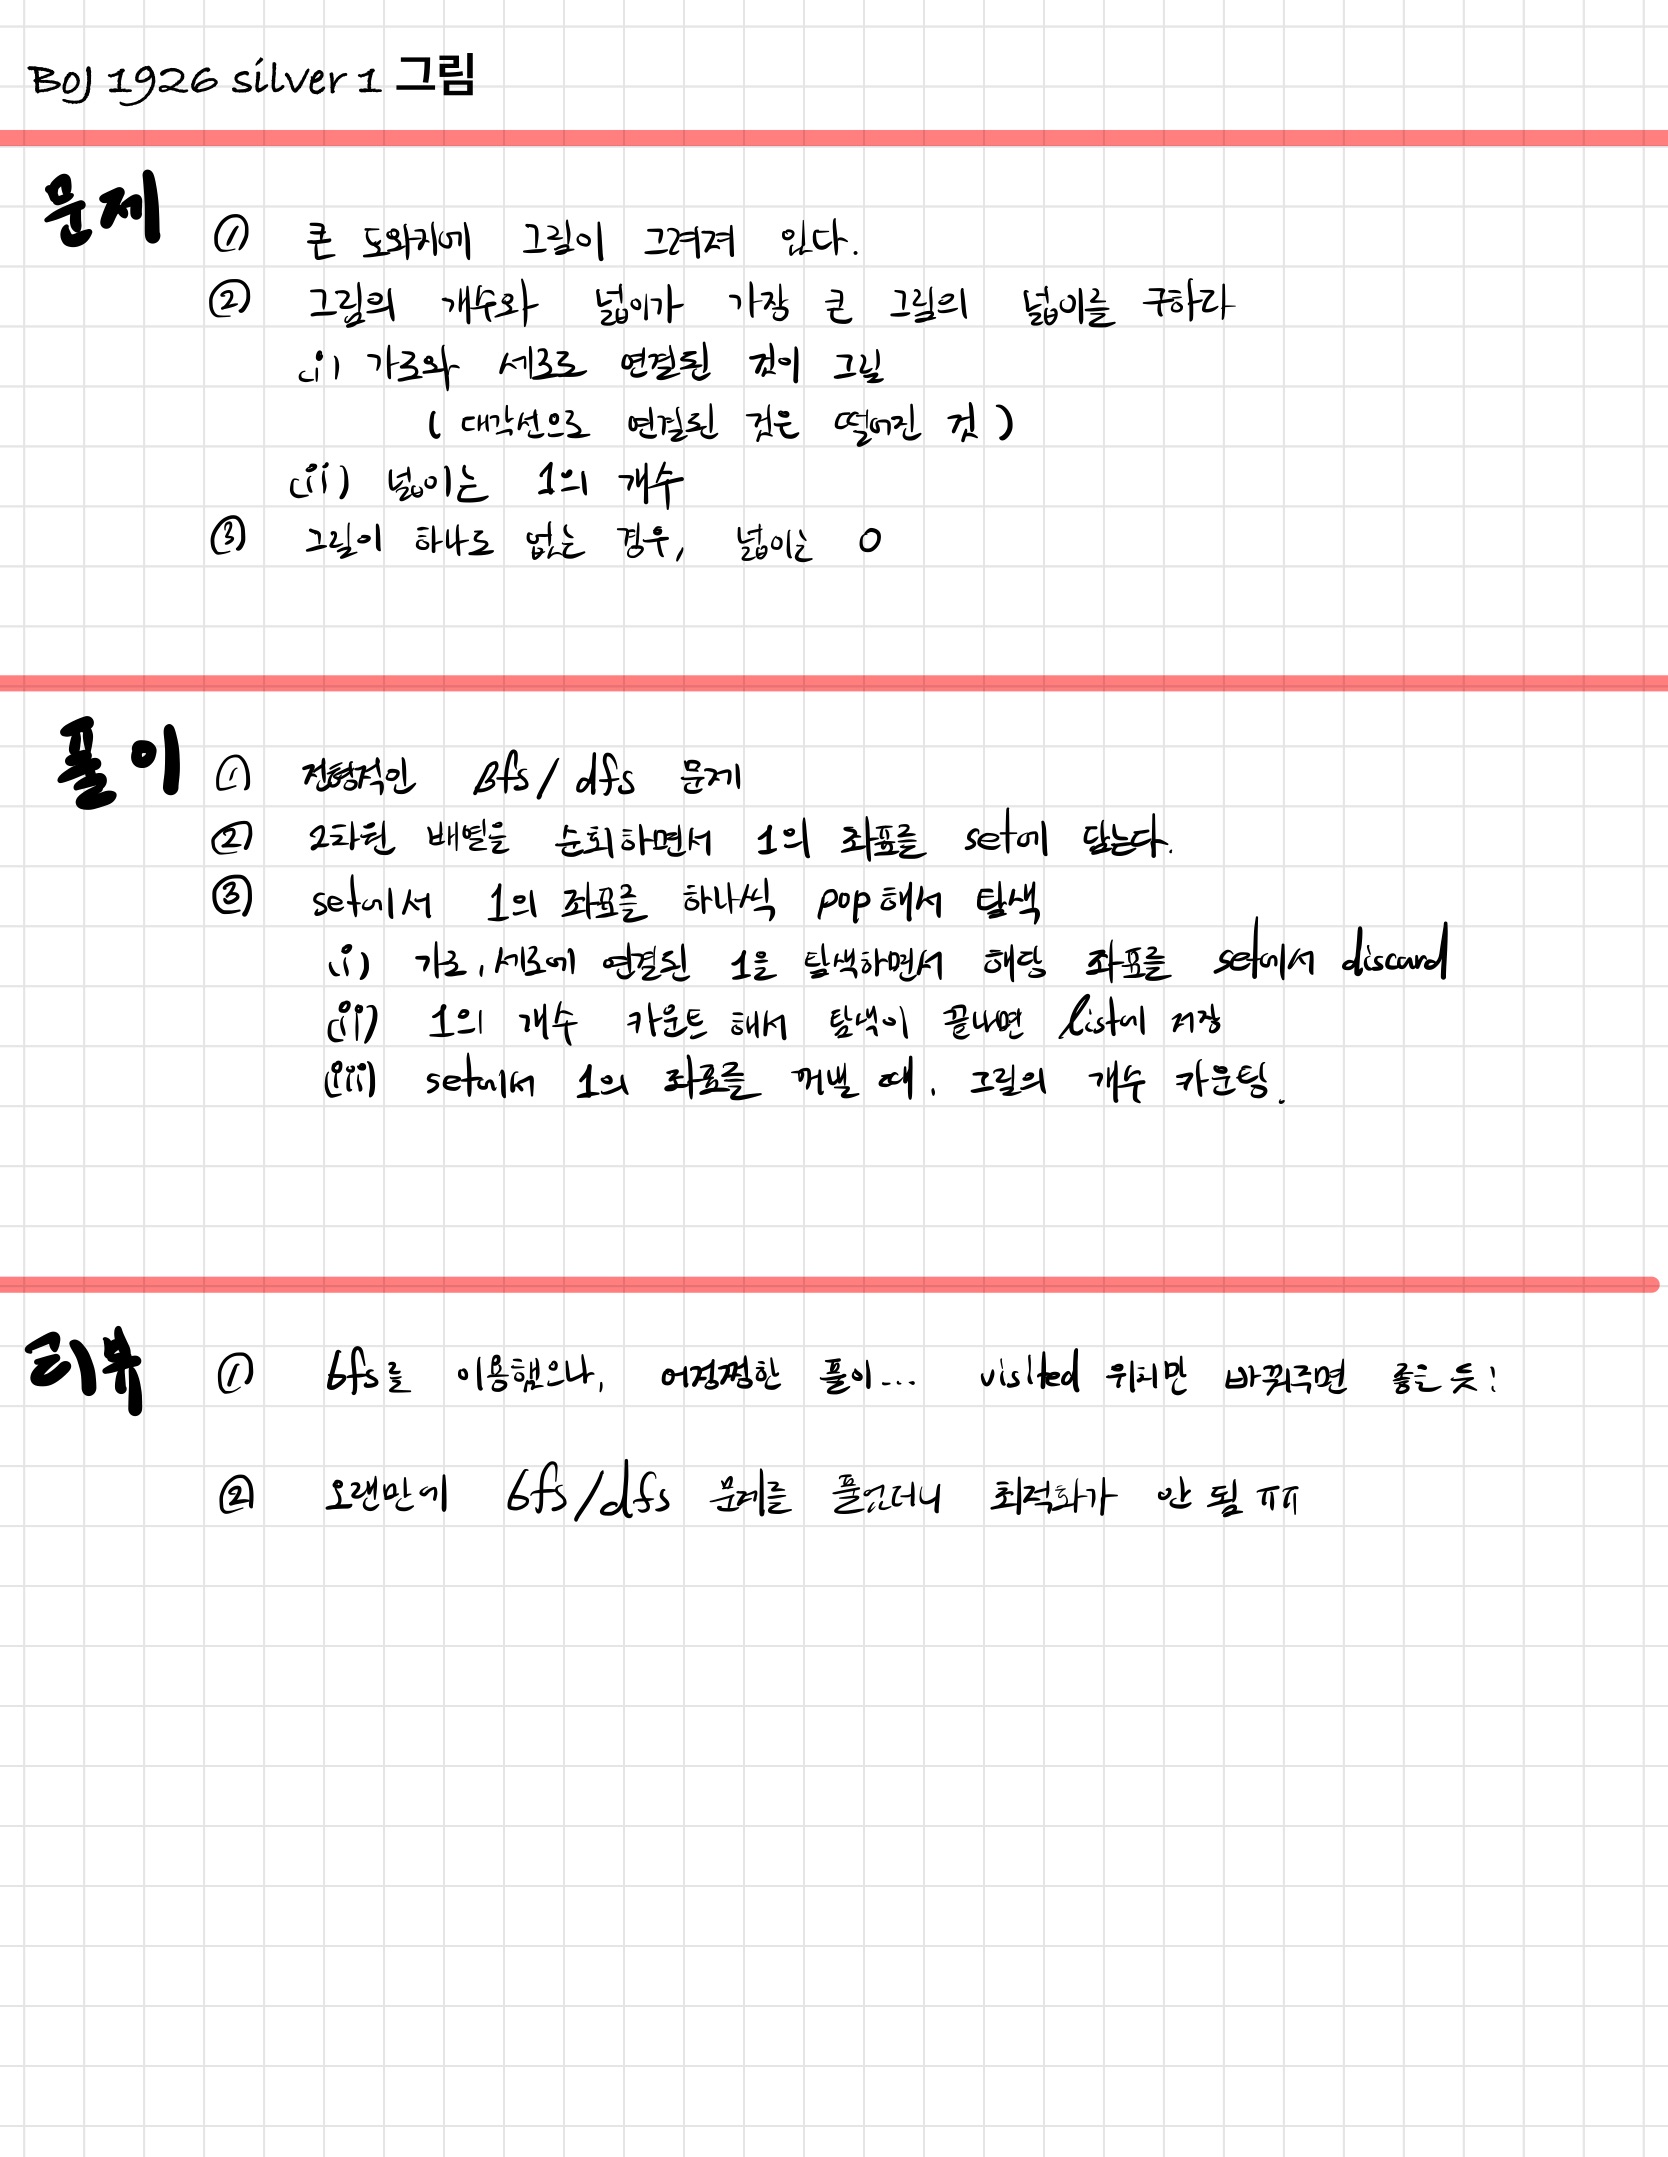 BOJ 1926 silver 1 그림
문제
① 큰 도와지에 그림이 그려져 있다.
② 그림의 개수와 넓이가 가장 큰 그림의 넓이를 구하라
(i) 가로와 세로로 연결된 것이 그림
( 대각선으로 연결된 것은 떨어진 것 )
(ii) 넓이는 1의 개수
③ 그림이 하나도 없는 경우, 넓이는 0
풀이
① 전형적인 Bfs/dfs 문제
② 2차원 배열을 순회하면서 1의 좌표를 set에 담는다.
③ set에서 1의 좌표를 하나씩 pop해서 탐색
(i) 가로, 세로에 연결된 1을 탐색하면서 해당 좌표를 set에서 discard
(ii) 1의 개수 카운트 해서 탐색이 끝나면 list에 저장
(iii) set에서 1의 좌표를 꺼낼 때, 그림의 개수 카운팅.
리뷰
① bfs를 이용했으나, 어정쩡한 풀이... visited 위치만 바꿔주면 좋을 듯!
② 오랜만에 bfs/dfs 문제를 풀었더니 최적화가 안 됨 ㅠㅠ